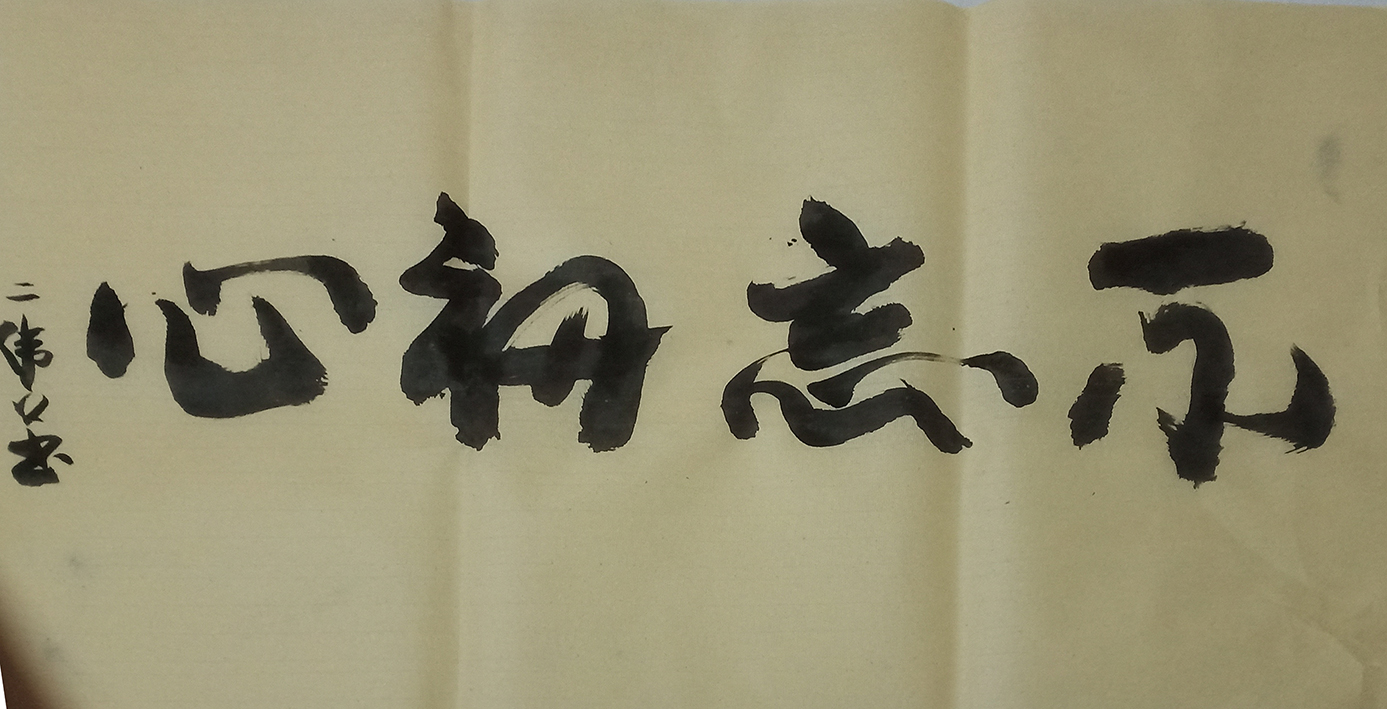 不忘初心
二伟书